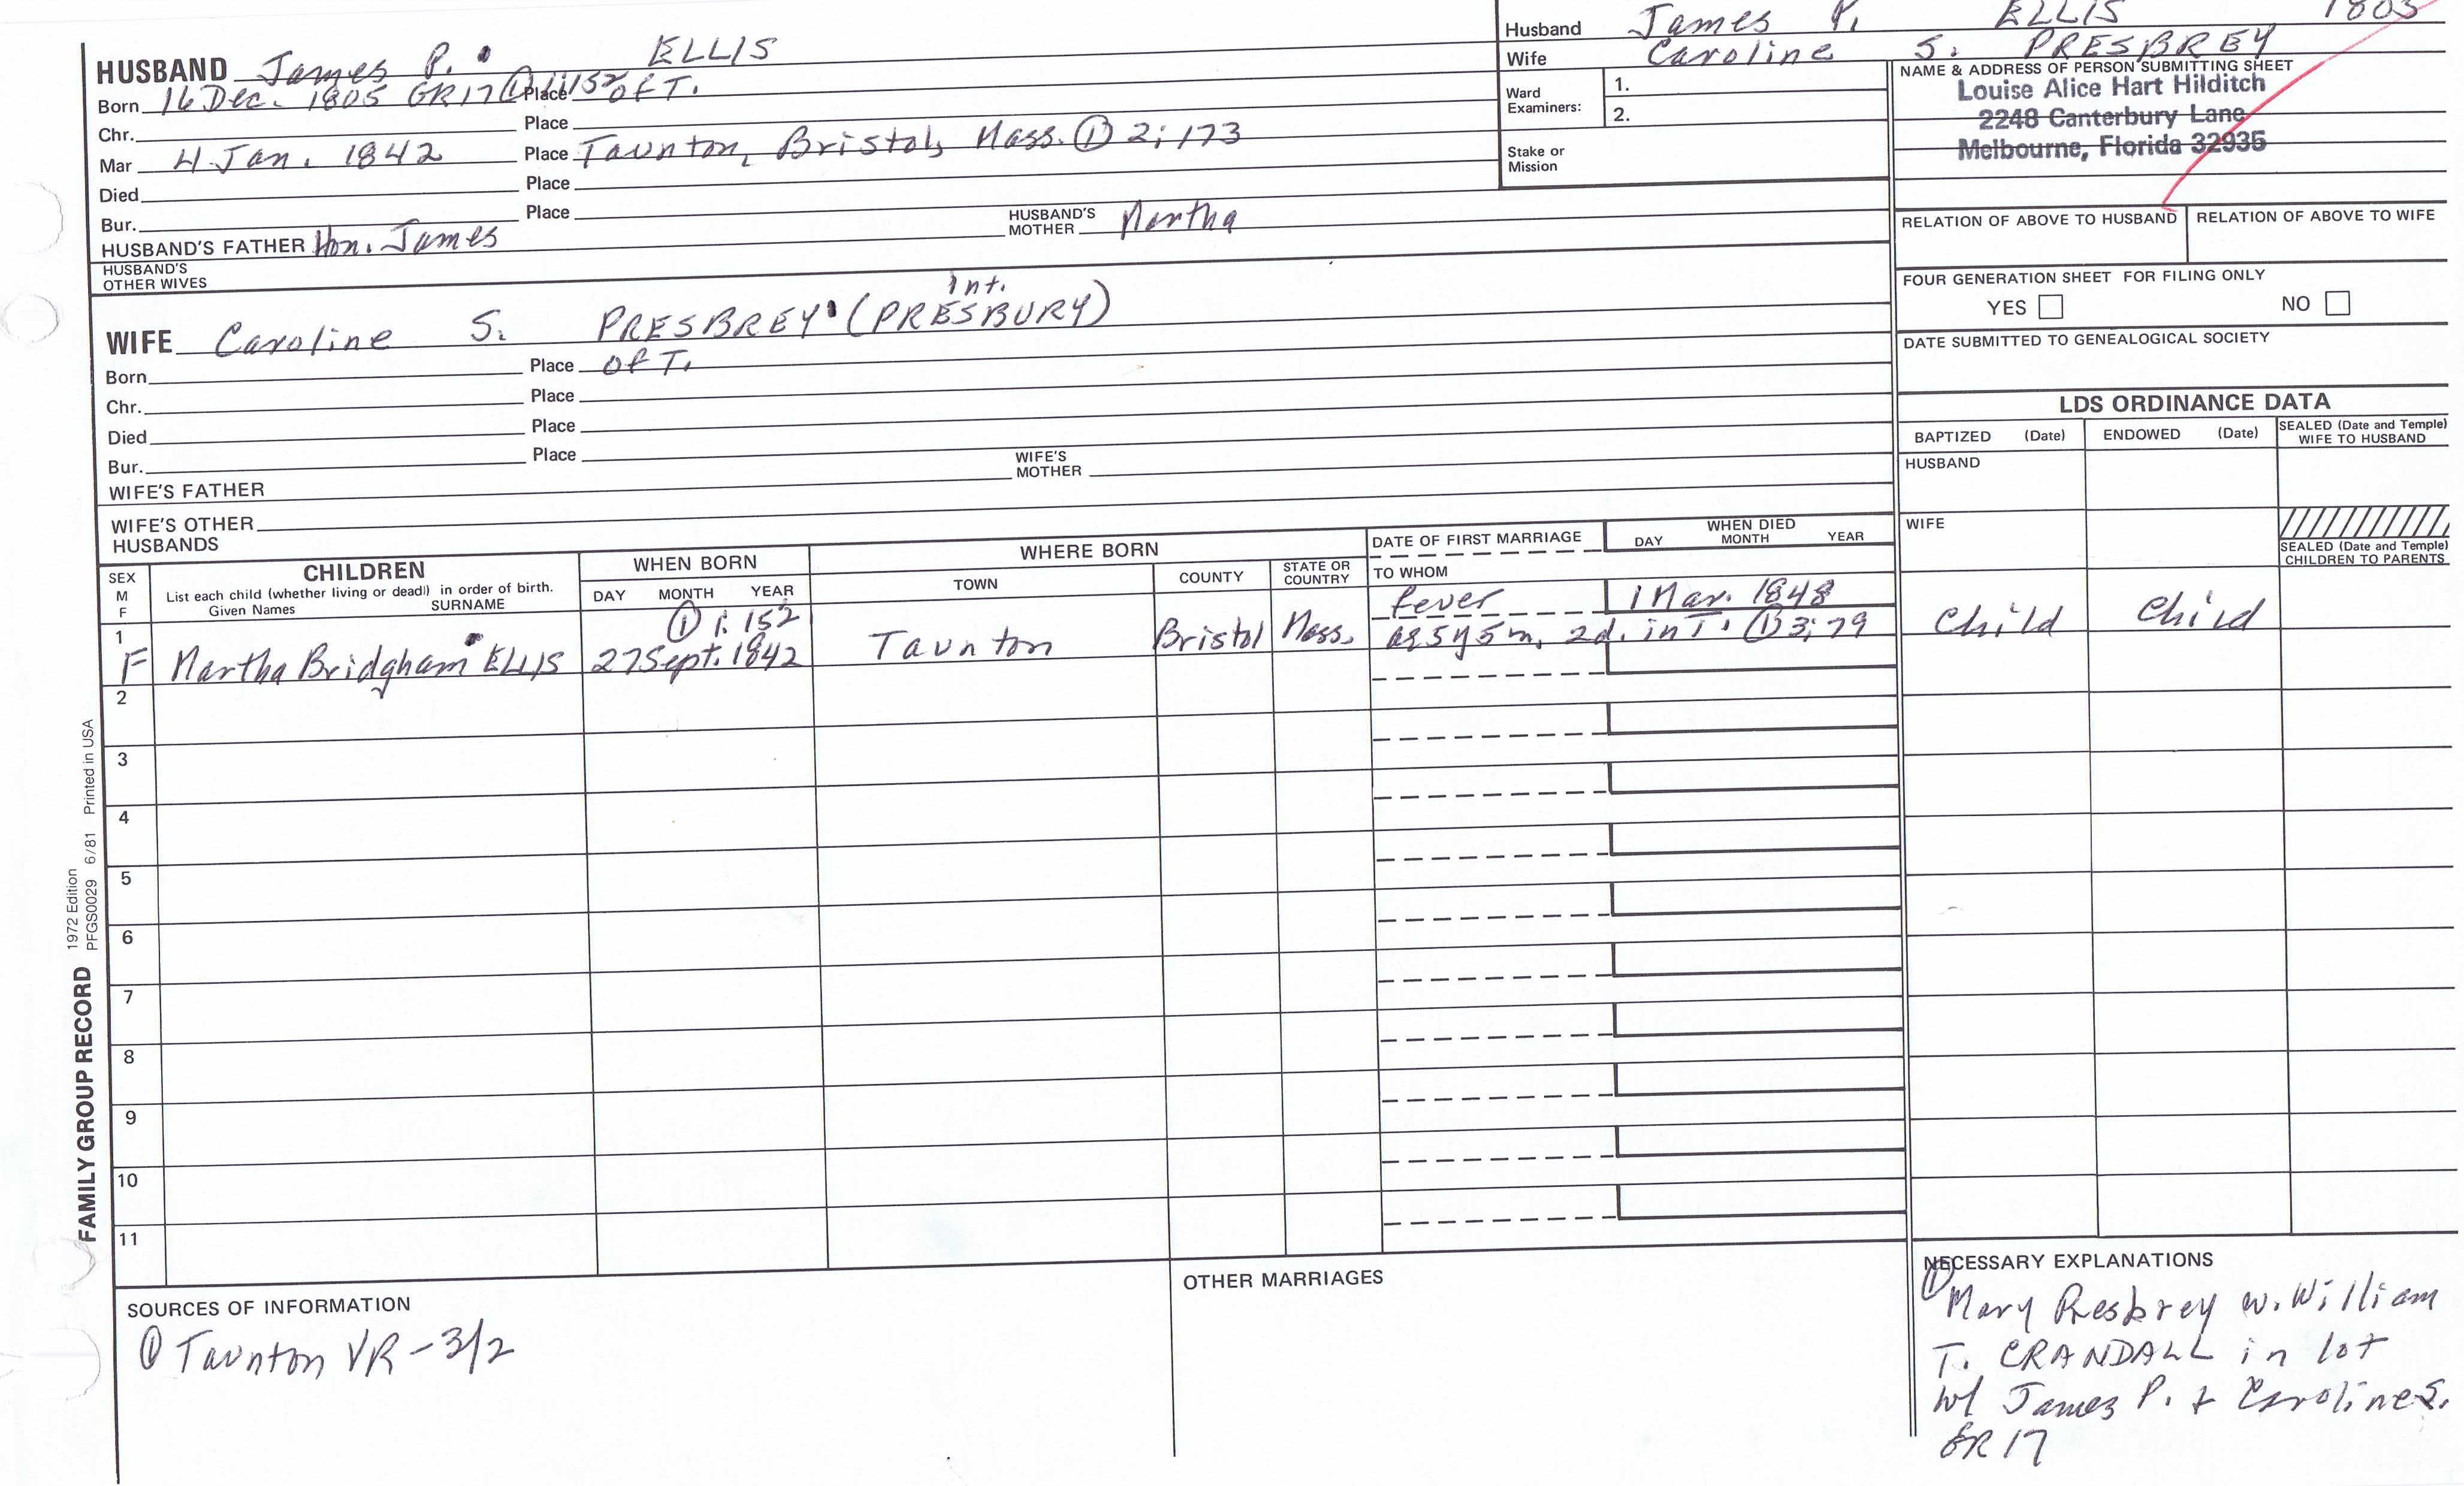 Husband James P. ELLIS 1805
Wife Caroline S. PRESBREY
Ward Examiners: 1.
2.
Stake or Mission
NAME & ADDRESS OF PERSON SUBMITTING SHEET
Louise Alice Hart Hilditch
2248 Canterbury Lane
Melbourne, Florida 32935
RELATION OF ABOVE TO HUSBAND RELATION OF ABOVE TO WIFE
FOUR GENERATION SHEET FOR FILING ONLY
YES NO
DATE SUBMITTED TO GENEALOGICAL SOCIETY
HUSBAND James P. ELLIS
Born 16 Dec. 1805 GR17 ① 1;152 Place of T.
Chr. Place
Mar 4 Jan. 1842 Place Taunton, Bristol, Mass. ① 2;173
Died Place
Bur. Place
HUSBAND'S FATHER Hon. James HUSBAND'S MOTHER Martha
HUSBAND'S OTHER WIVES
Int.
WIFE Caroline S. PRESBREY (PRESBURY)
Born Place of T.
Chr. Place
Died Place
Bur. Place
WIFE'S FATHER WIFE'S MOTHER
WIFE'S OTHER HUSBANDS
LDS ORDINANCE DATA
BAPTIZED (Date) ENDOWED (Date) SEALED (Date and Temple) WIFE TO HUSBAND
HUSBAND
WIFE
SEALED (Date and Temple) CHILDREN TO PARENTS
SEX M F
CHILDREN
List each child (whether living or dead) in order of birth.
Given Names SURNAME
WHEN BORN
DAY MONTH YEAR
WHERE BORN
TOWN COUNTY STATE OR COUNTRY
DATE OF FIRST MARRIAGE
TO WHOM
WHEN DIED
DAY MONTH YEAR
① 1:152 fever 1 Mar. 1848
1 F Martha Bridgham ELLIS 27 Sept. 1842 Taunton Bristol Mass. ag 5y 5m, 2d. in T. ① 3;79 Child Child
2
3
4
5
6
7
8
9
10
11
FAMILY GROUP RECORD 1972 Edition
PFGS0029 6/81 Printed in USA
SOURCES OF INFORMATION
① Taunton VR - 3/2
OTHER MARRIAGES
NECESSARY EXPLANATIONS
① Mary Presbrey w. William
T. CRANDALL in lot
w/ James P. + Caroline S.
GR 17